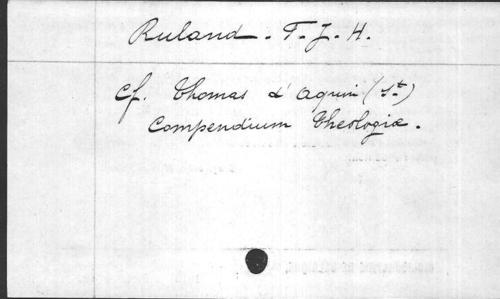 Ruland - F. J. H.
Cf. Thomas d'Aquin (St)
Compendium Theologiæ.